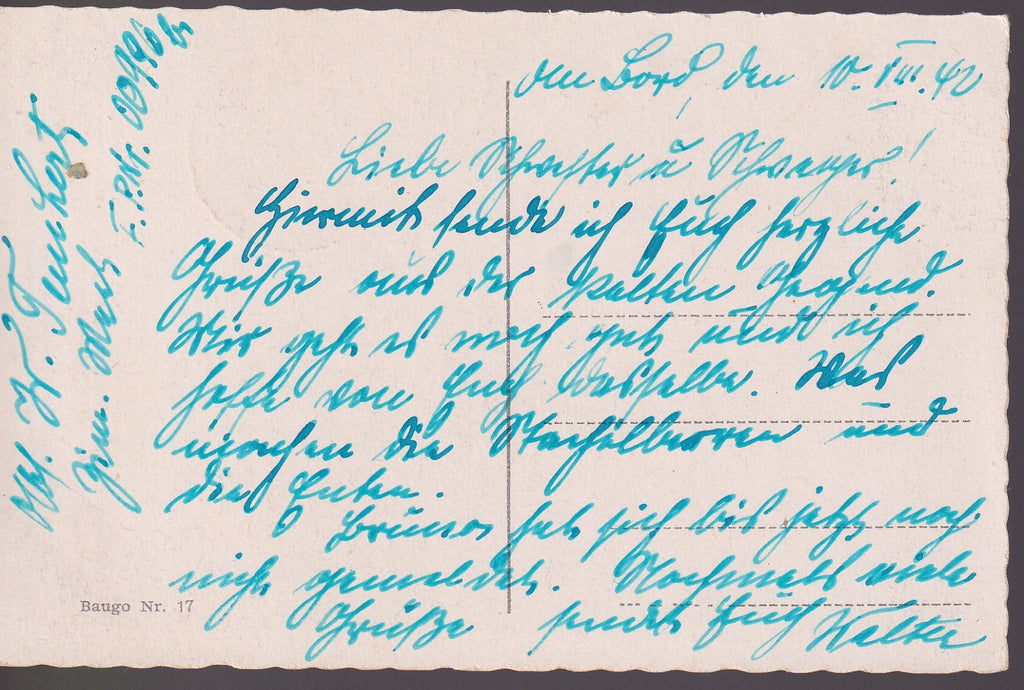 Am Bord, den 10. VIII. 42
Liebe Schwester u Schwager!
Hiermit sende ich Euch herzliche
Grüße aus der kalten Gegend.
Mir geht es noch gut und ich
hoffe von Euch dasselbe. Was
machen die Stachelbeeren und
die Enten.
Bruno hat sich bis jetzt noch
nicht gemeldet. Nochmals viele
Grüße sendet Euch Walter
Abs. W.
Zim.
F.P.Nr.
Baugo Nr. 17